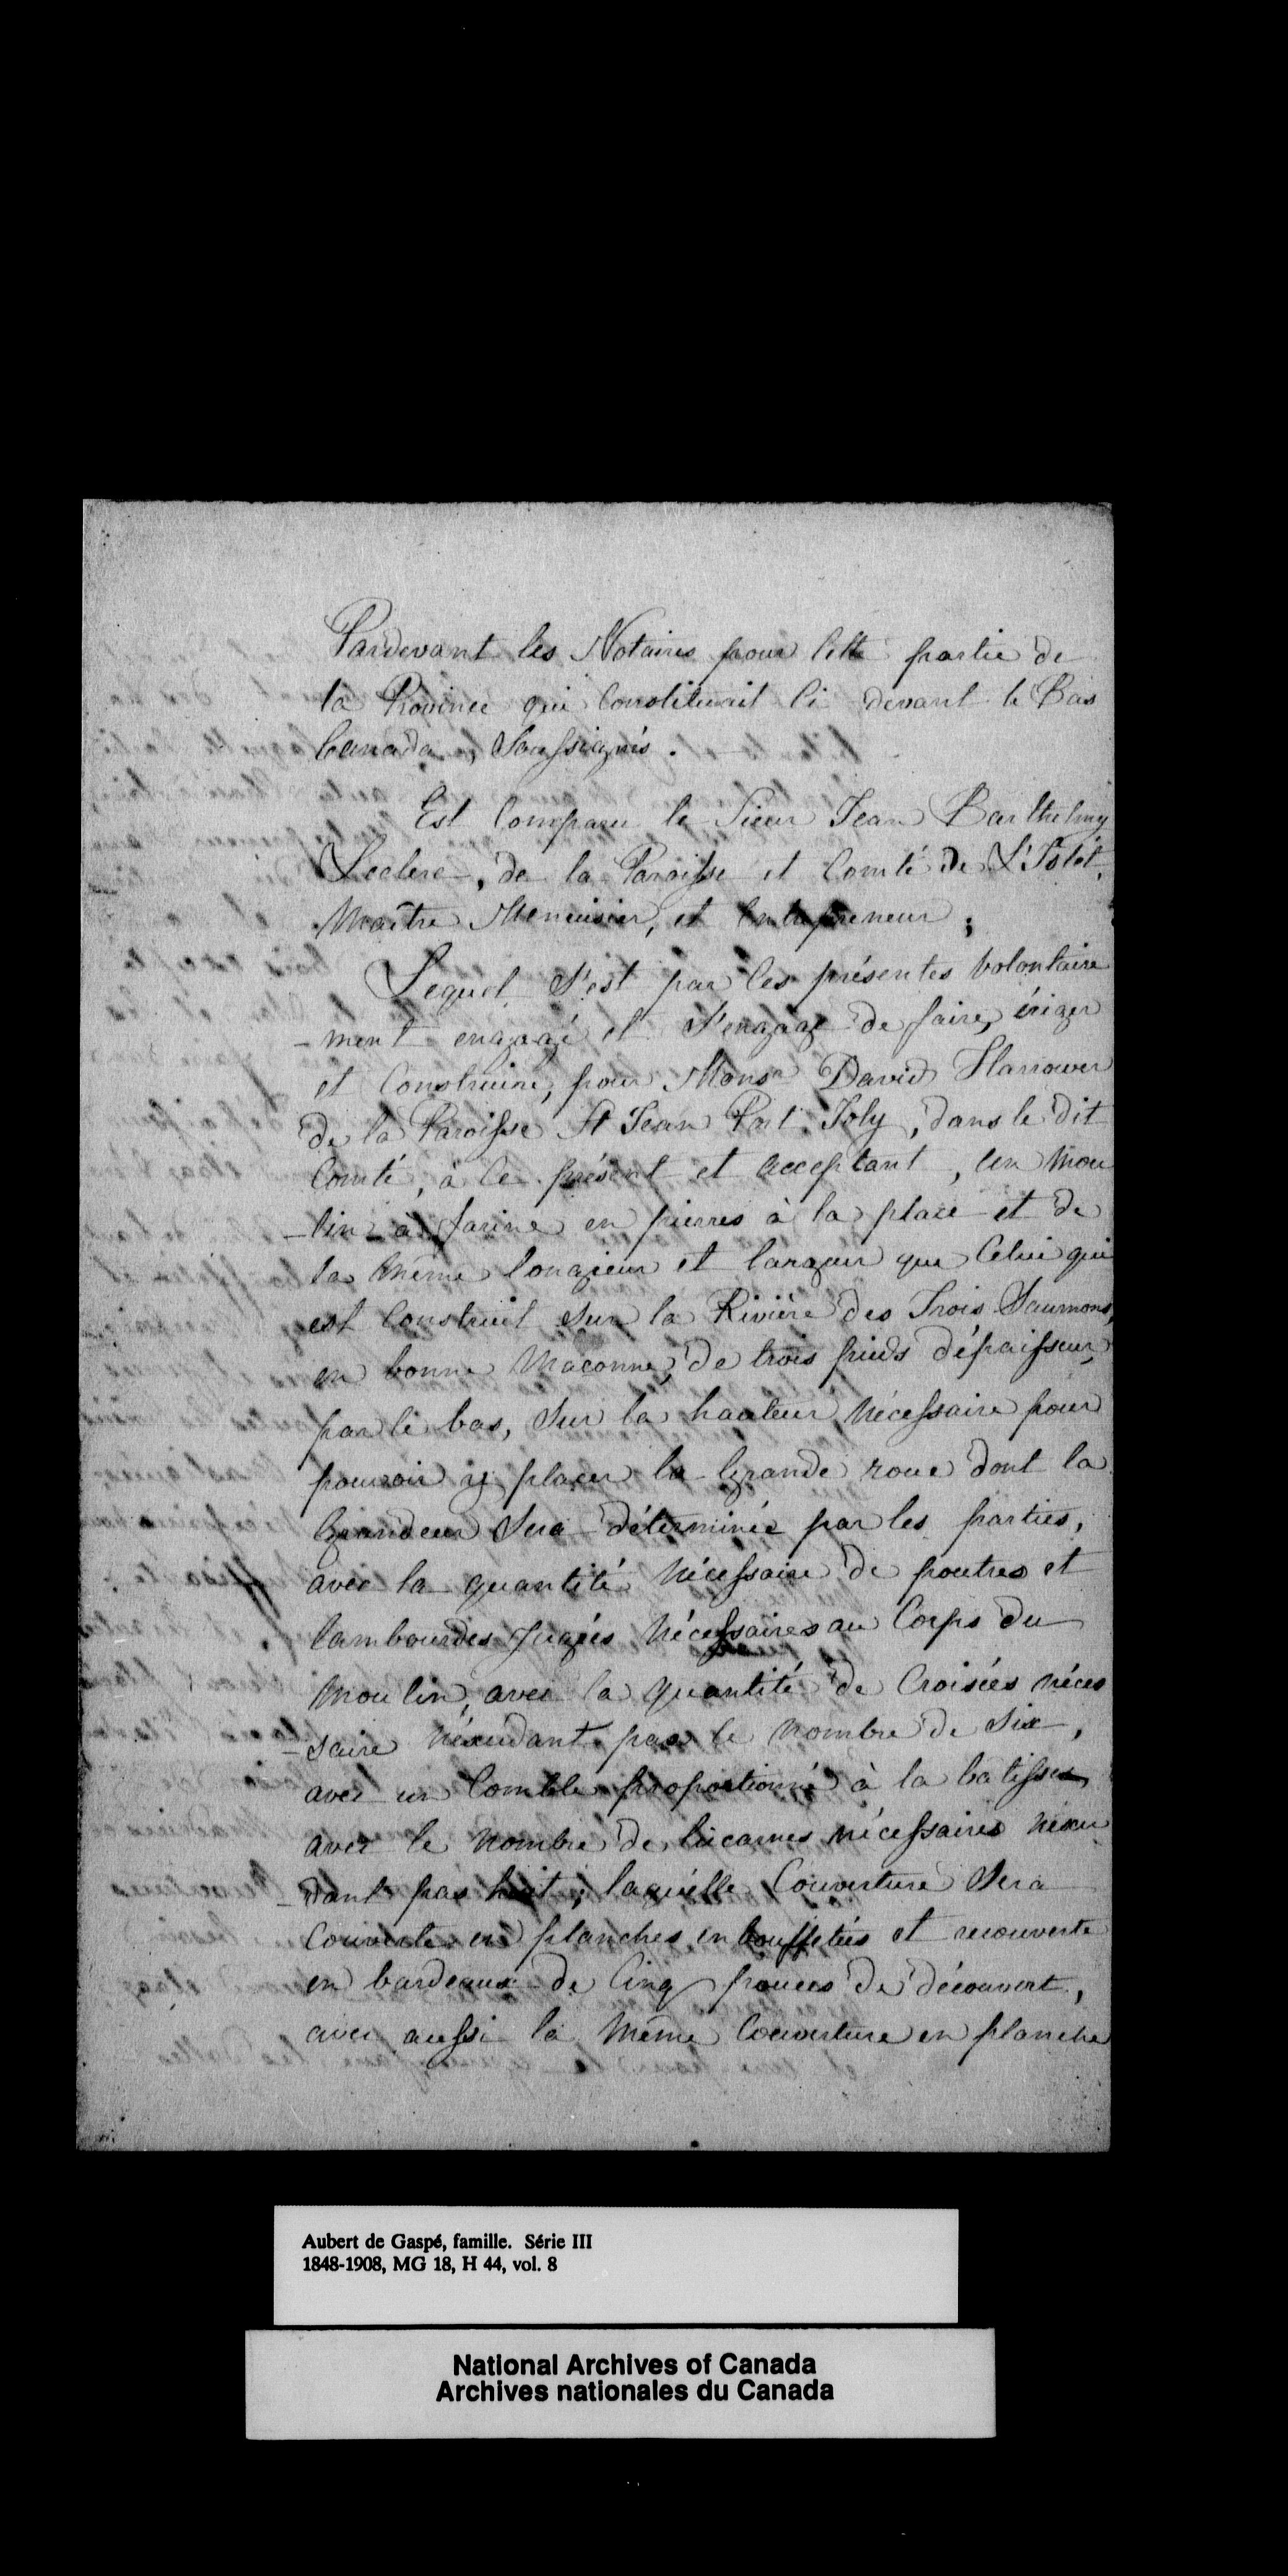 Pardevant les Notaires pour Cette partie de
la Province qui Constituait Ci devant le Bas
Canada, Soussignés.
Est Comparu le Sieur Jean Barthelmy
Leclerc, de la Paroisse et Comté de L'Islét,
Maître Menuisier, et Entrepreneur;
Lequel S'est par les présentes volontaire
-ment engagé et S'engage de faire, ériger
et Construire, pour Monsr David Harrower
de la Paroisse St Jean Port Joly, dans le dit
Comté, à Ce présent et acceptant, Un Mou
-lin à farine en pierres à la place et de
la même longueur et largeur que Celui qui
est Construit Sur la Rivière des Trois Saumons,
en bonne Maconne, de trois pieds dépaisseur
par le bas, Sur la hauteur Nécessaire pour
pouvoir y placer la Grande roue dont la
Grandeur Sera déterminée par les parties,
avec la quantité Nécessaire de poutres et
lambourdes Jugées Nécessaires au Corps du
Moulin, avec la quantité de Croisées néces
-saire Nexcédant pas le Nombre de Six,
avec un Comble proportionné à la batisse
avec le Nombre de lucarnes nécessaires Nexcé
-dant pas huit; laquélle Couverture Sera
Couverte en planches embouffetées et recouverte
en bardeaux de Cinq pouces de découvert,
avec aussi la Même Couverture en planche
Aubert de Gaspé, famille. Série III
1848-1908, MG 18, H 44, vol. 8
National Archives of Canada
Archives nationales du Canada